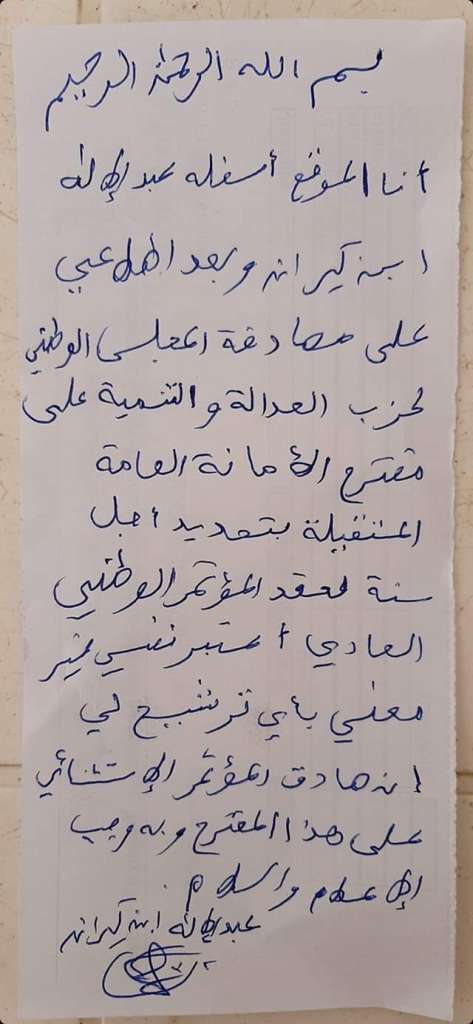 بسم الله الرحمن الرحيم
أنا الموقع أسفله عبد الإلاه
ابن كيران وبعد اطلاعي
على مصادقة المجلس الوطني
لحزب العدالة والتنمية على
مقترح الأمانة العامة
المستقيلة بتحديد أجل
سنة لعقد المؤتمر الوطني
العادي أعتبر نفسي غير
معني بأي ترشيح لي
إن صادق المؤتمر الإستثنائي
على هذا المقترح وبه وجب
الإعلام والسلام.
عبد الإلاه ابن كيران